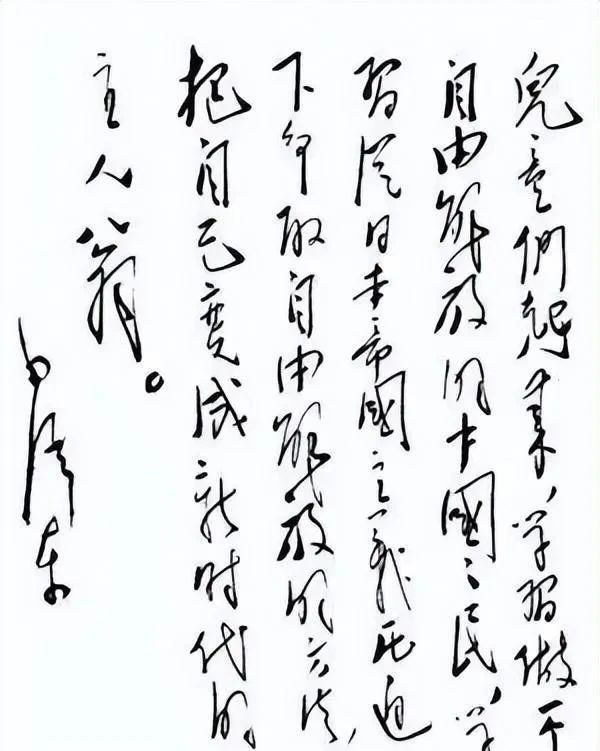 兒童們起来，学習做一个
自由解放的中國々民，学
習從日本帝國主義压迫
下争取自由解放的方法，
把自己变成新时代的
主人翁。
毛澤东